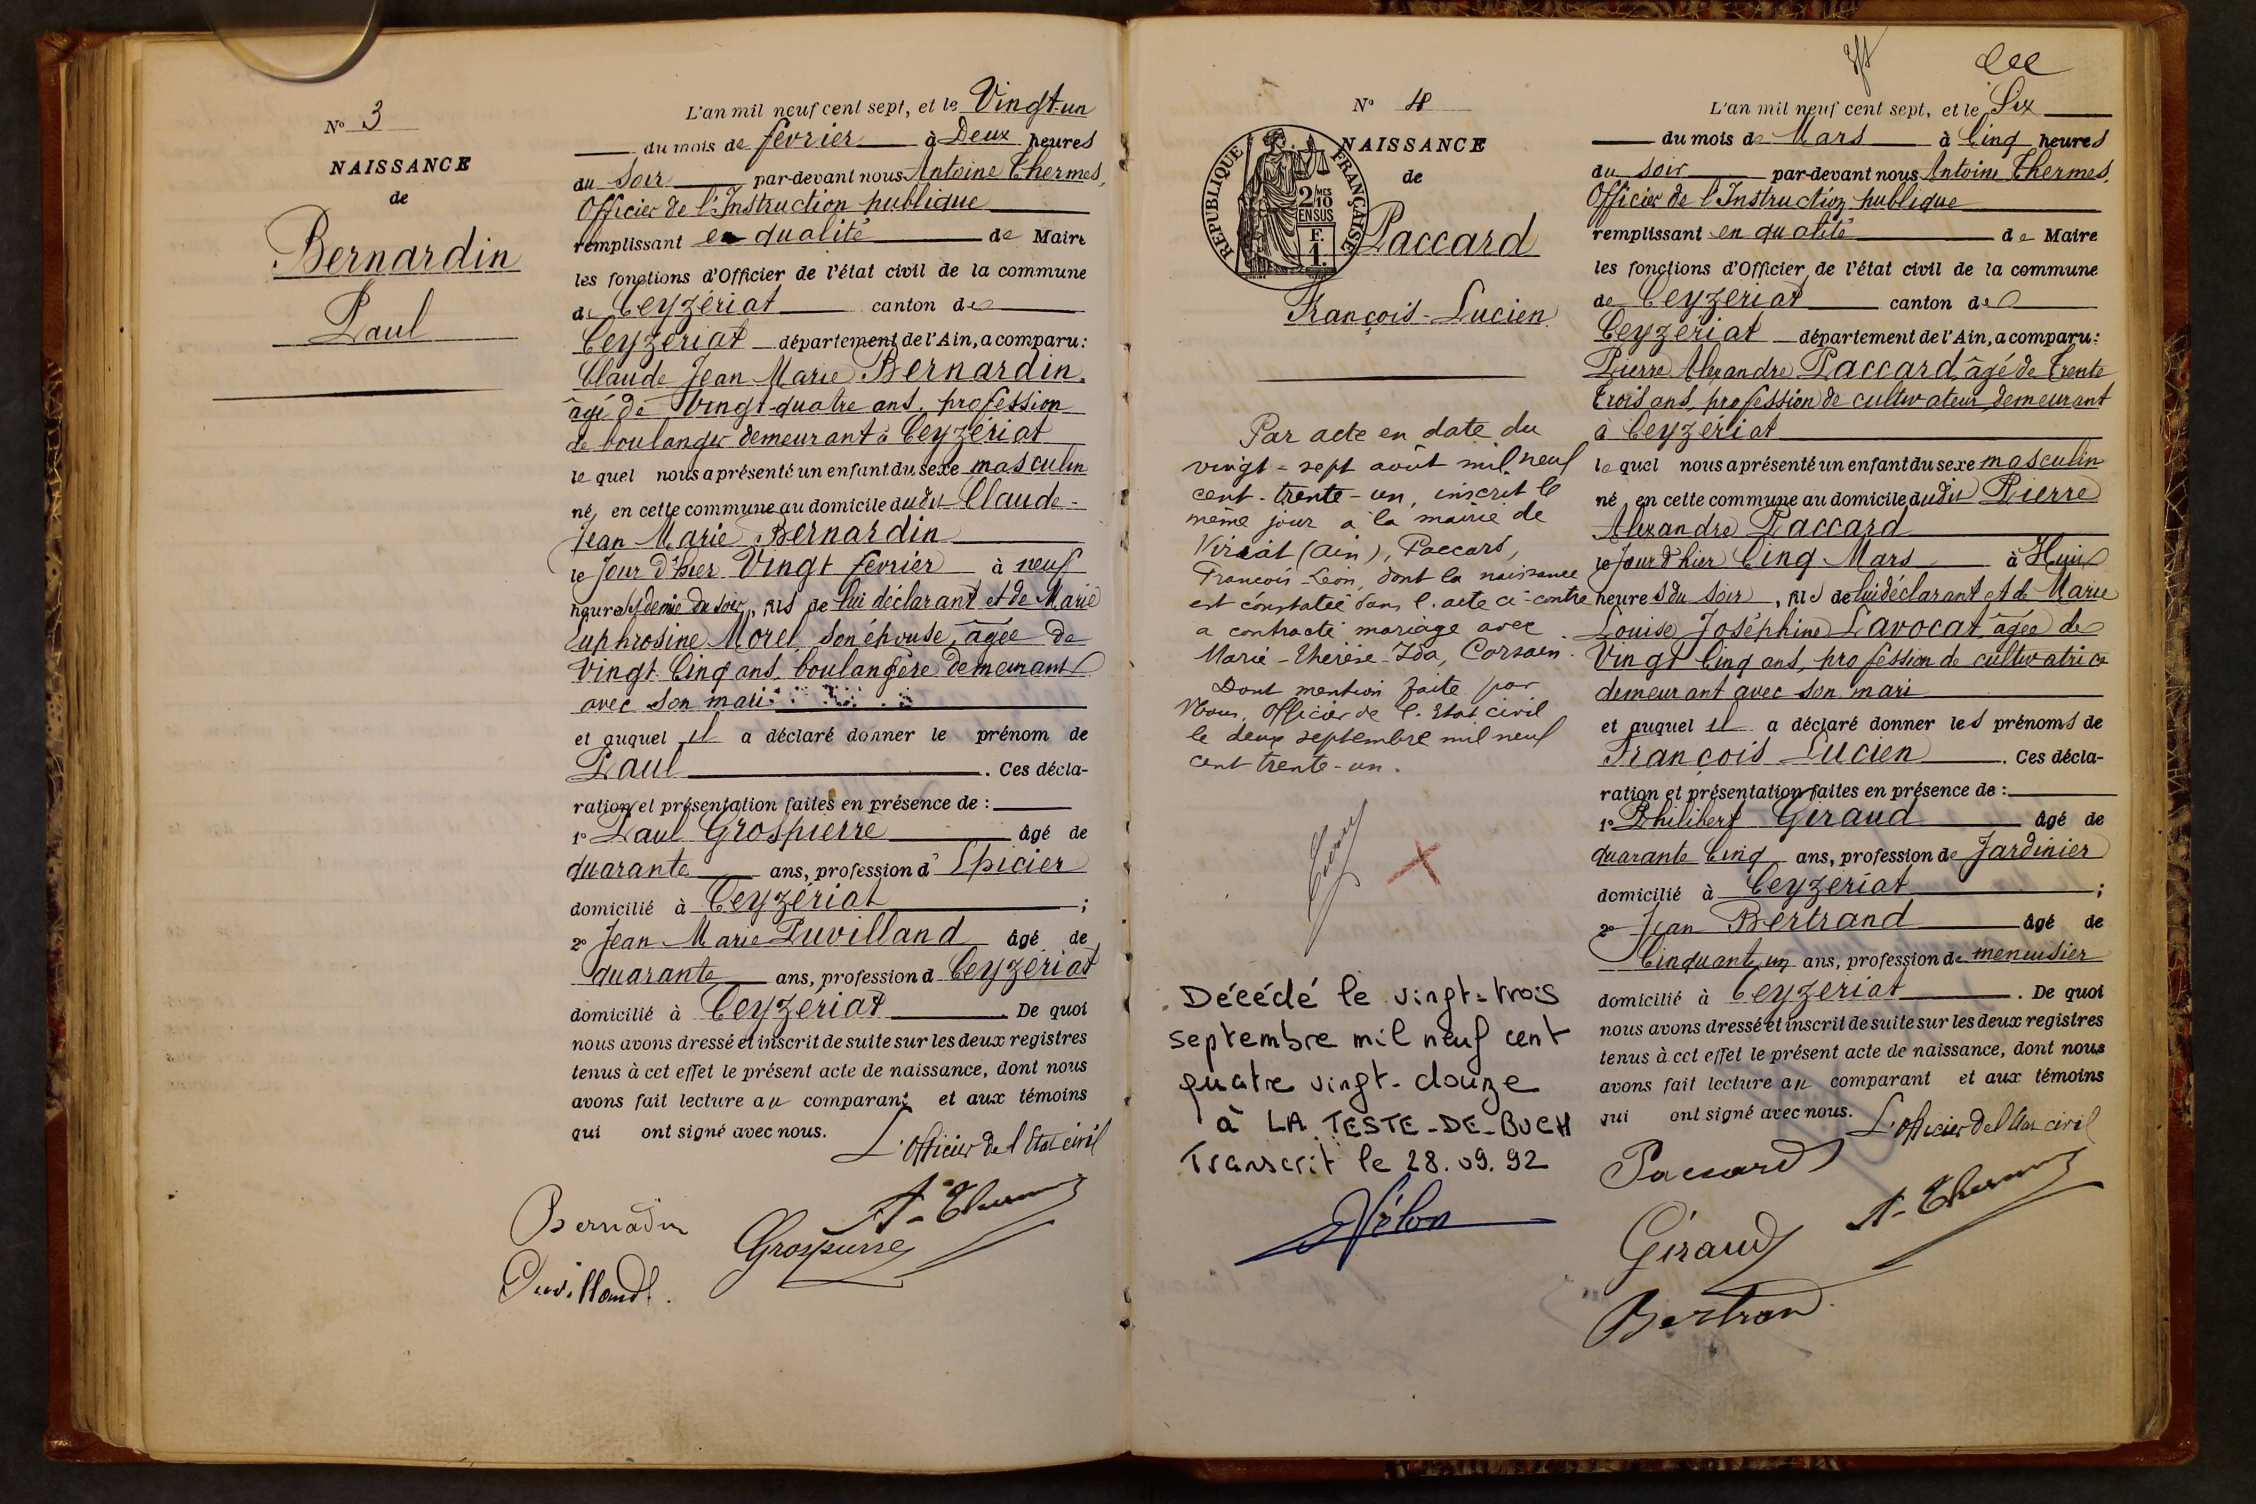 N° 3
NAISSANCE
de
Bernardin
Paul
L'an mil neuf cent sept, et le Vingt-un
du mois de février à Deux heures
du soir par-devant nous Antoine Thermes,
Officier de l'Instruction publique
remplissant en qualité de Maire
les fonctions d'Officier de l'état civil de la commune
de Ceyzériat canton de
Ceyzériat département de l'Ain, a comparu:
Claude Jean Marie Bernardin.
âgé de vingt-quatre ans, profession
de boulanger demeurant à Ceyzériat
le quel nous a présenté un enfant du sexe masculin
né, en cette commune au domicile dudit Claude-
Jean Marie Bernardin
le jour d'hier Vingt février à neuf
heures et demie du soir, fils de lui déclarant et de Marie
Euphrosine Morel son épouse, âgée de
Vingt Cinq ans, boulangère demeurant
avec son mari
et auquel il a déclaré donner le prénom de
Paul. Ces décla-
ration et présentation faites en présence de :
1° Paul Grospierre âgé de
quarante ans, profession d' Epicier
domicilié à Ceyzériat ;
2° Jean Marie Puvilland âgé de
quarante ans, profession d Ceyzériat
domicilié à Ceyzériat. De quoi
nous avons dressé et inscrit de suite sur les deux registres
tenus à cet effet le présent acte de naissance, dont nous
avons fait lecture au comparant et aux témoins
qui ont signé avec nous.
L'officier de l'Etat civil
A. Thermes
Bernadin
Grospierre
Puvilland.
N° 4
NAISSANCE
de
RÉPUBLIQUE FRANÇAISE
2 MES
10
EN SUS
F.
1.
Paccard
François-Lucien
Par acte en date du
vingt-sept août mil neuf
cent-trente-un, inscrit le
même jour à la mairie de
Viriat (Ain), Paccard,
François-Léon, dont la naissance
est constatée dans l'acte ci-contre
a contracté mariage avec
Marie-Thérèse-Ida, Corsain.
Dont mention faite par
Nous, Officier de l'Etat civil
le deux septembre mil neuf
cent trente-un.
Décédé le vingt-trois
septembre mil neuf cent
quatre vingt-douze
à LA TESTE-DE-BUCH
Transcrit le 28.09.92
L'an mil neuf cent sept, et le Six
du mois de Mars à Cinq heures
du soir par-devant nous Antoine Thermes,
Officier de l'Instruction publique
remplissant en qualité de Maire
les fonctions d'Officier de l'état civil de la commune
de Ceyzériat canton de
Ceyzériat département de l'Ain, a comparu:
Pierre Alexandre Paccard âgé de trente
trois ans, profession de cultivateur demeurant
à Ceyzériat
le quel nous a présenté un enfant du sexe masculin
né, en cette commune au domicile dudit Pierre
Alexandre Paccard
le jour d'hier Cinq Mars à Huit
heures du soir, fils de lui déclarant et de Marie
Louise Joséphine Lavocat âgée de
Vingt Cinq ans, profession de cultivatrice
demeurant avec son mari
et auquel il a déclaré donner les prénoms de
François Lucien. Ces décla-
ration et présentation faites en présence de :
1° Philibert Géraud âgé de
quarante Cinq ans, profession de Jardinier
domicilié à Ceyzériat ;
2° Jean Bertrand âgé de
Cinquante un ans, profession de menuisier
domicilié à Ceyzériat. De quoi
nous avons dressé et inscrit de suite sur les deux registres
tenus à cet effet le présent acte de naissance, dont nous
avons fait lecture au comparant et aux témoins
qui ont signé avec nous.
L'officier de l'Etat civil
Paccard
A. Thermes
Géraud
Bertran